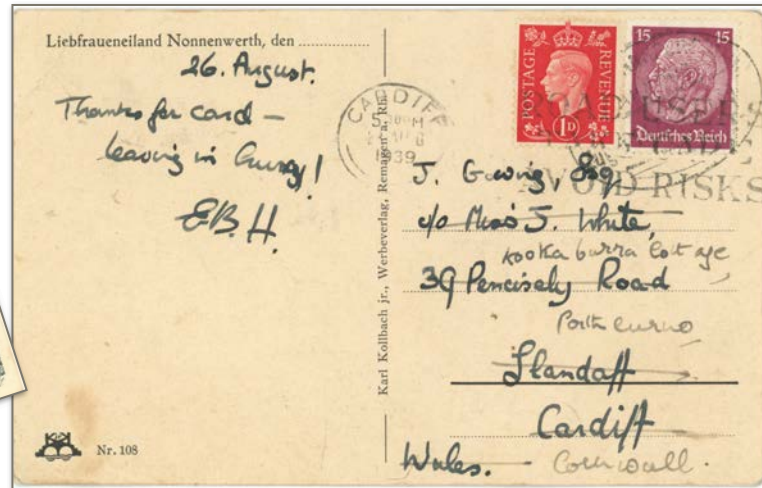 Liebfraueneiland Nonnenwerth, den
26. August.
Thanks for card –
leaving in hurry!
E.B.H.
Nr. 108
Karl Kollbach jr., Werbeverlag, Remagen a. Rh.
CARDIFF
1939
POSTAGE REVENUE
1D
15 15
Deutsches Reich
ROAD USERS
AVOID RISKS
J. Esq.
c/o Miss J. White,
Kookaburra Cottage
39 Pencisely Road
Porthcurno
Llandaff
Cardiff
Wales.
Cornwall.